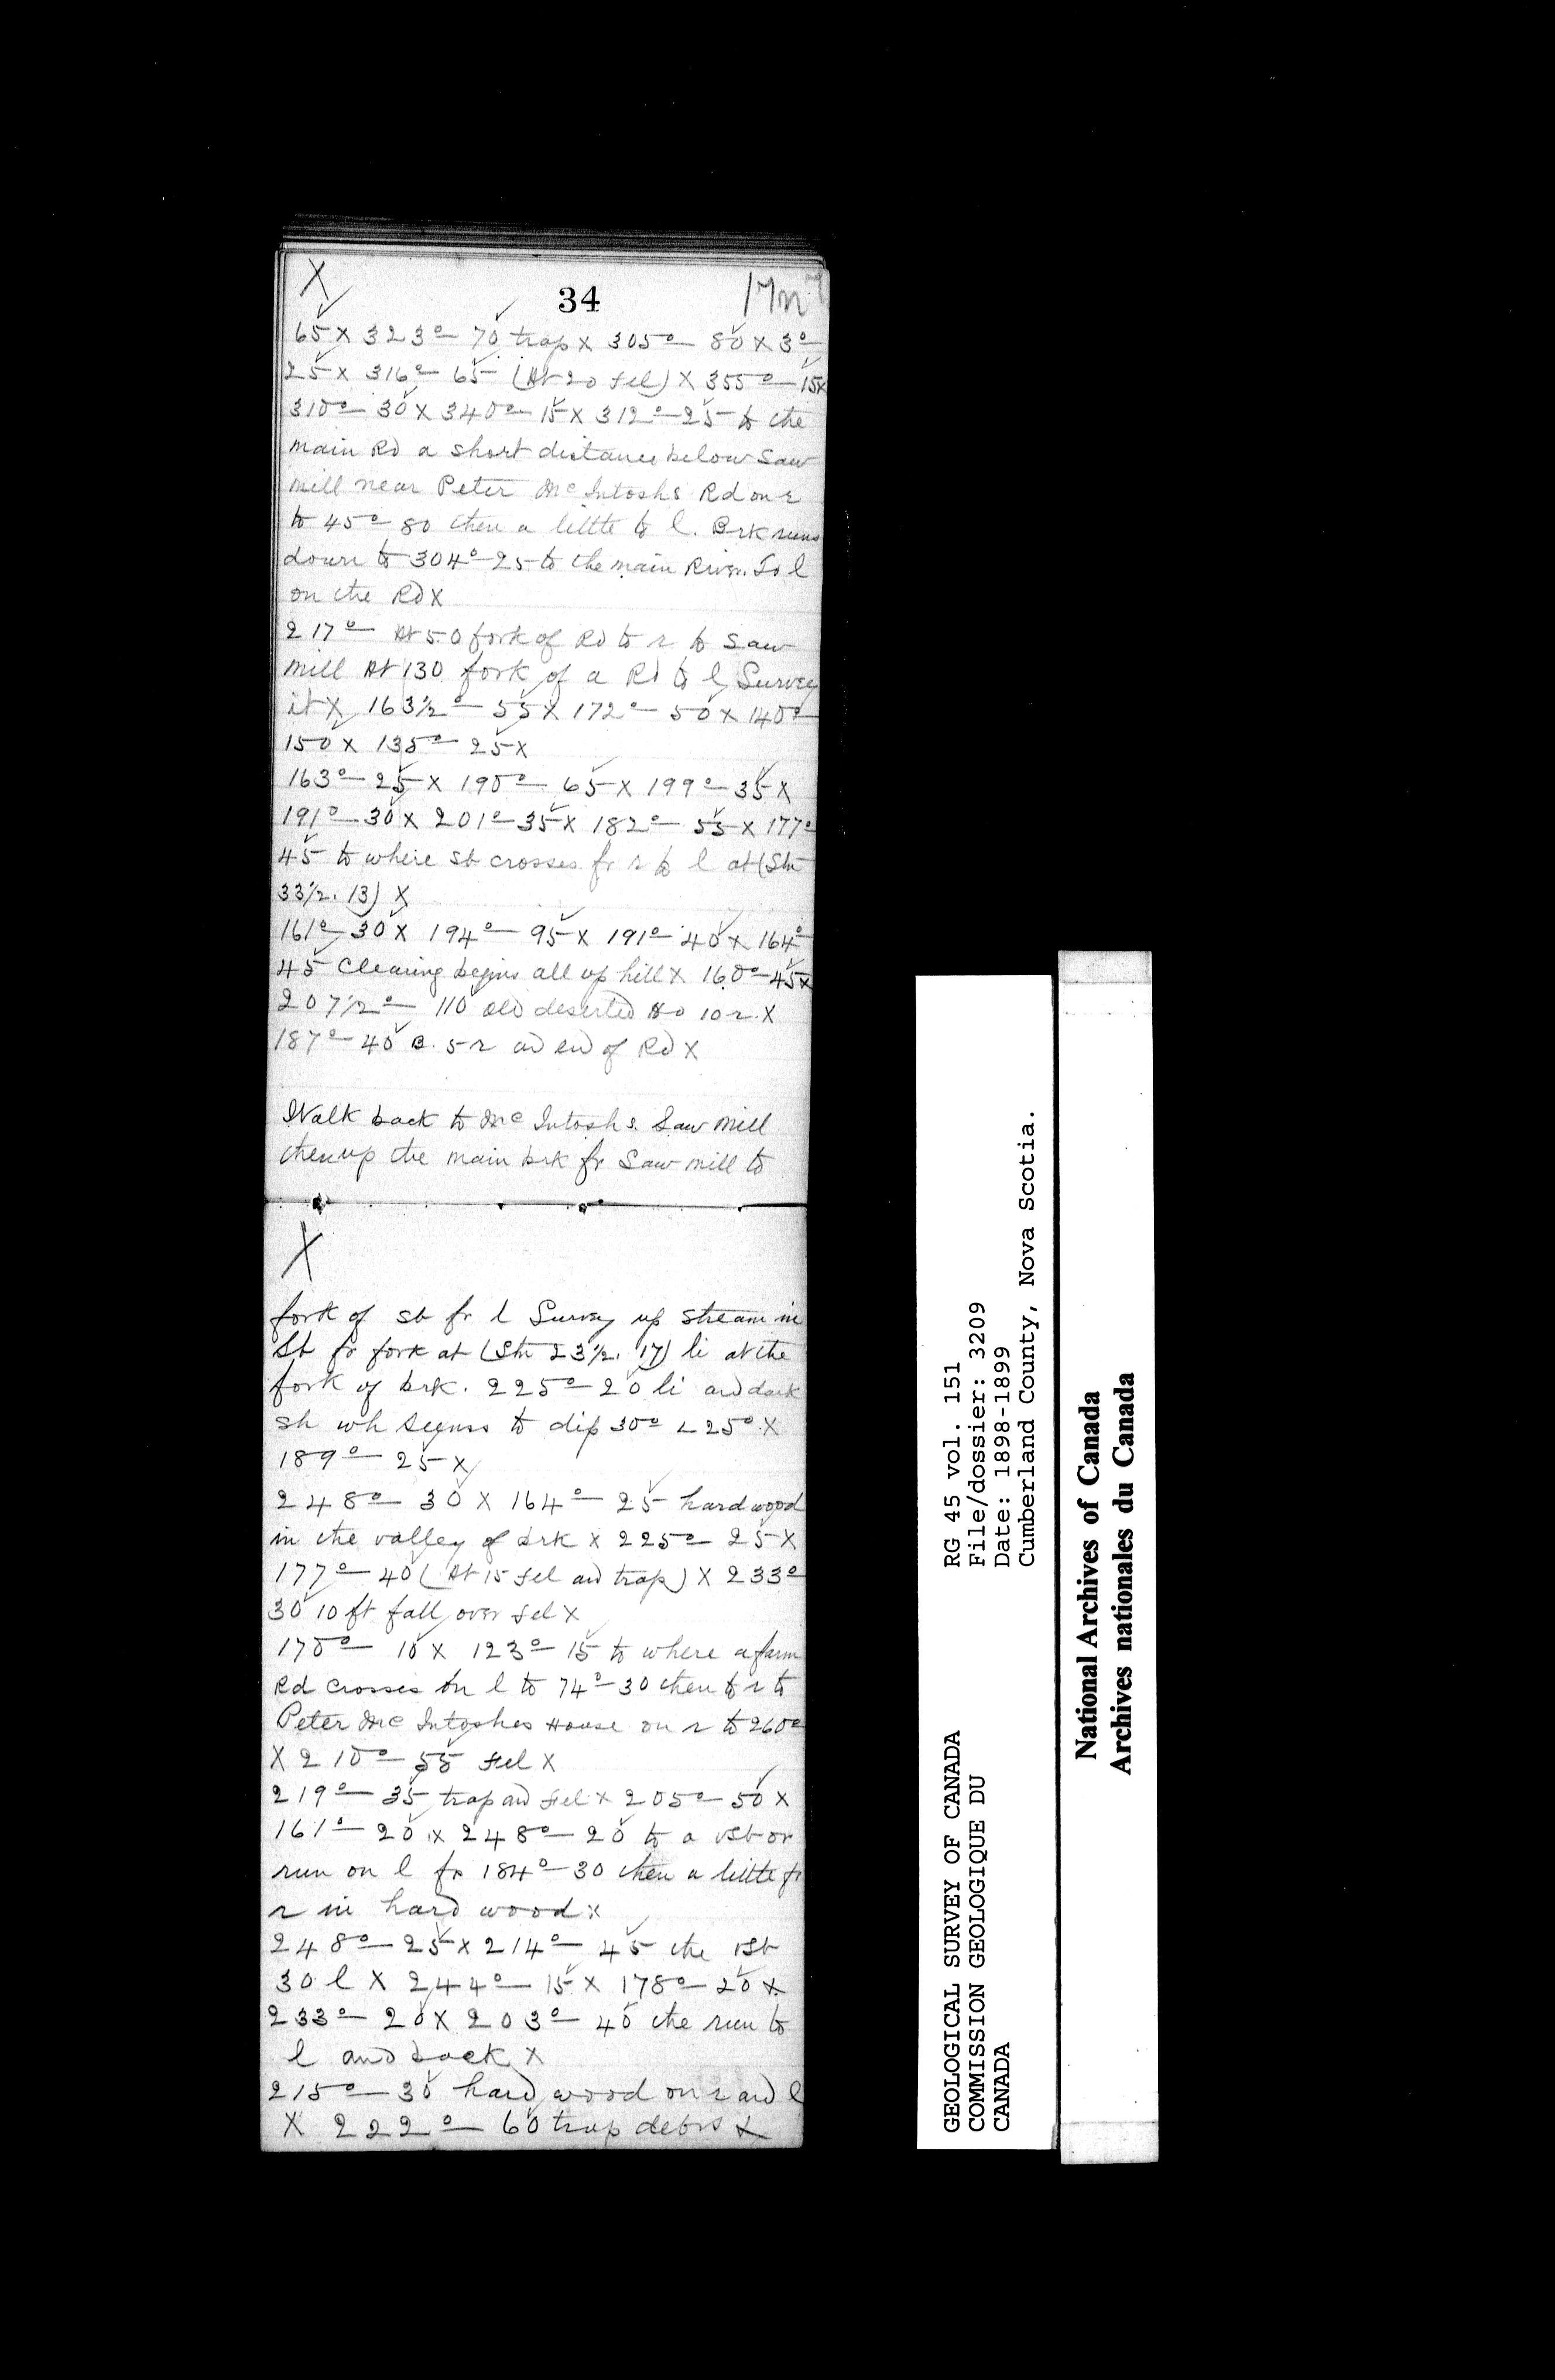 X 34
65 X 323° — 70 trap X 305° — 80 X 3° —
25 X 316° — 65 (At 20 fel) X 355° — 15 X
310° — 30 X 340° — 15 X 312° — 25 to the
main Rd a short distance below Saw
mill near Peter McIntoshs Rd on r
to 45° — 80 then a little to l. Brk runs
down to 304° — 25 to the main River. To l
on the Rd X
217° — At 50 fork of Rd to r to Saw
mill At 130 fork of a Rd to l Survey
it X 163 1/2° — 55 X 172° — 50 X 140° —
150 X 135° — 25 X
163° — 25 X 190° — 65 X 199° — 35 X
191° — 30 X 201° — 35 X 182° — 55 X 177° —
45 to where sb crosses fr r to l at (Stn
33 1/2. 13) X
161° — 30 X 194° — 95 X 191° — 40 X 164° —
45 Clearing begins all up hill X 160° — 45 X
207 1/2° — 110 old deserted Ho 10 r. X
187° — 40 B. 5 r and end of Rd X
Walk back to McIntoshs. Saw mill
then up the main brk fr Saw mill to
X
fork of sb fr l Survey up stream in
Sb fr fork at (Stn 23 1/2. 17) li at the
fork of brk. 225° — 20 li and dark
sh wh seems to dip 30° ∠ 25° X
189° — 25 X
248° — 30 X 164° — 25 hard wood
in the valley of brk X 225° — 25 X
177° — 40 (At 15 fel and trap) X 233° —
30 10 ft fall over fel X
170° — 10 X 123° — 15 to where a farm
Rd crosses on l to 74° — 30 then to r to
Peter McIntoshes House on r to 260° —
X 210° — 55 fel X
219° — 35 trap and fel X 205° — 50 X
161° — 20 X 248° — 20 to a vsb or
run on l fr 184° — 30 then a little fr
r in hard wood X
248° — 25 X 214° — 45 the vsb
30 l X 244° — 15 X 178° — 20 X
233° — 20 X 203° — 40 the run to
l and back X
215° — 30 hard wood on r and l
X 222° — 60 trap debris X
GEOLOGICAL SURVEY OF CANADA
COMMISSION GEOLOGIQUE DU
CANADA
RG 45 vol. 151
File/dossier: 3209
Date: 1898-1899
Cumberland County, Nova Scotia.
National Archives of Canada
Archives nationales du Canada